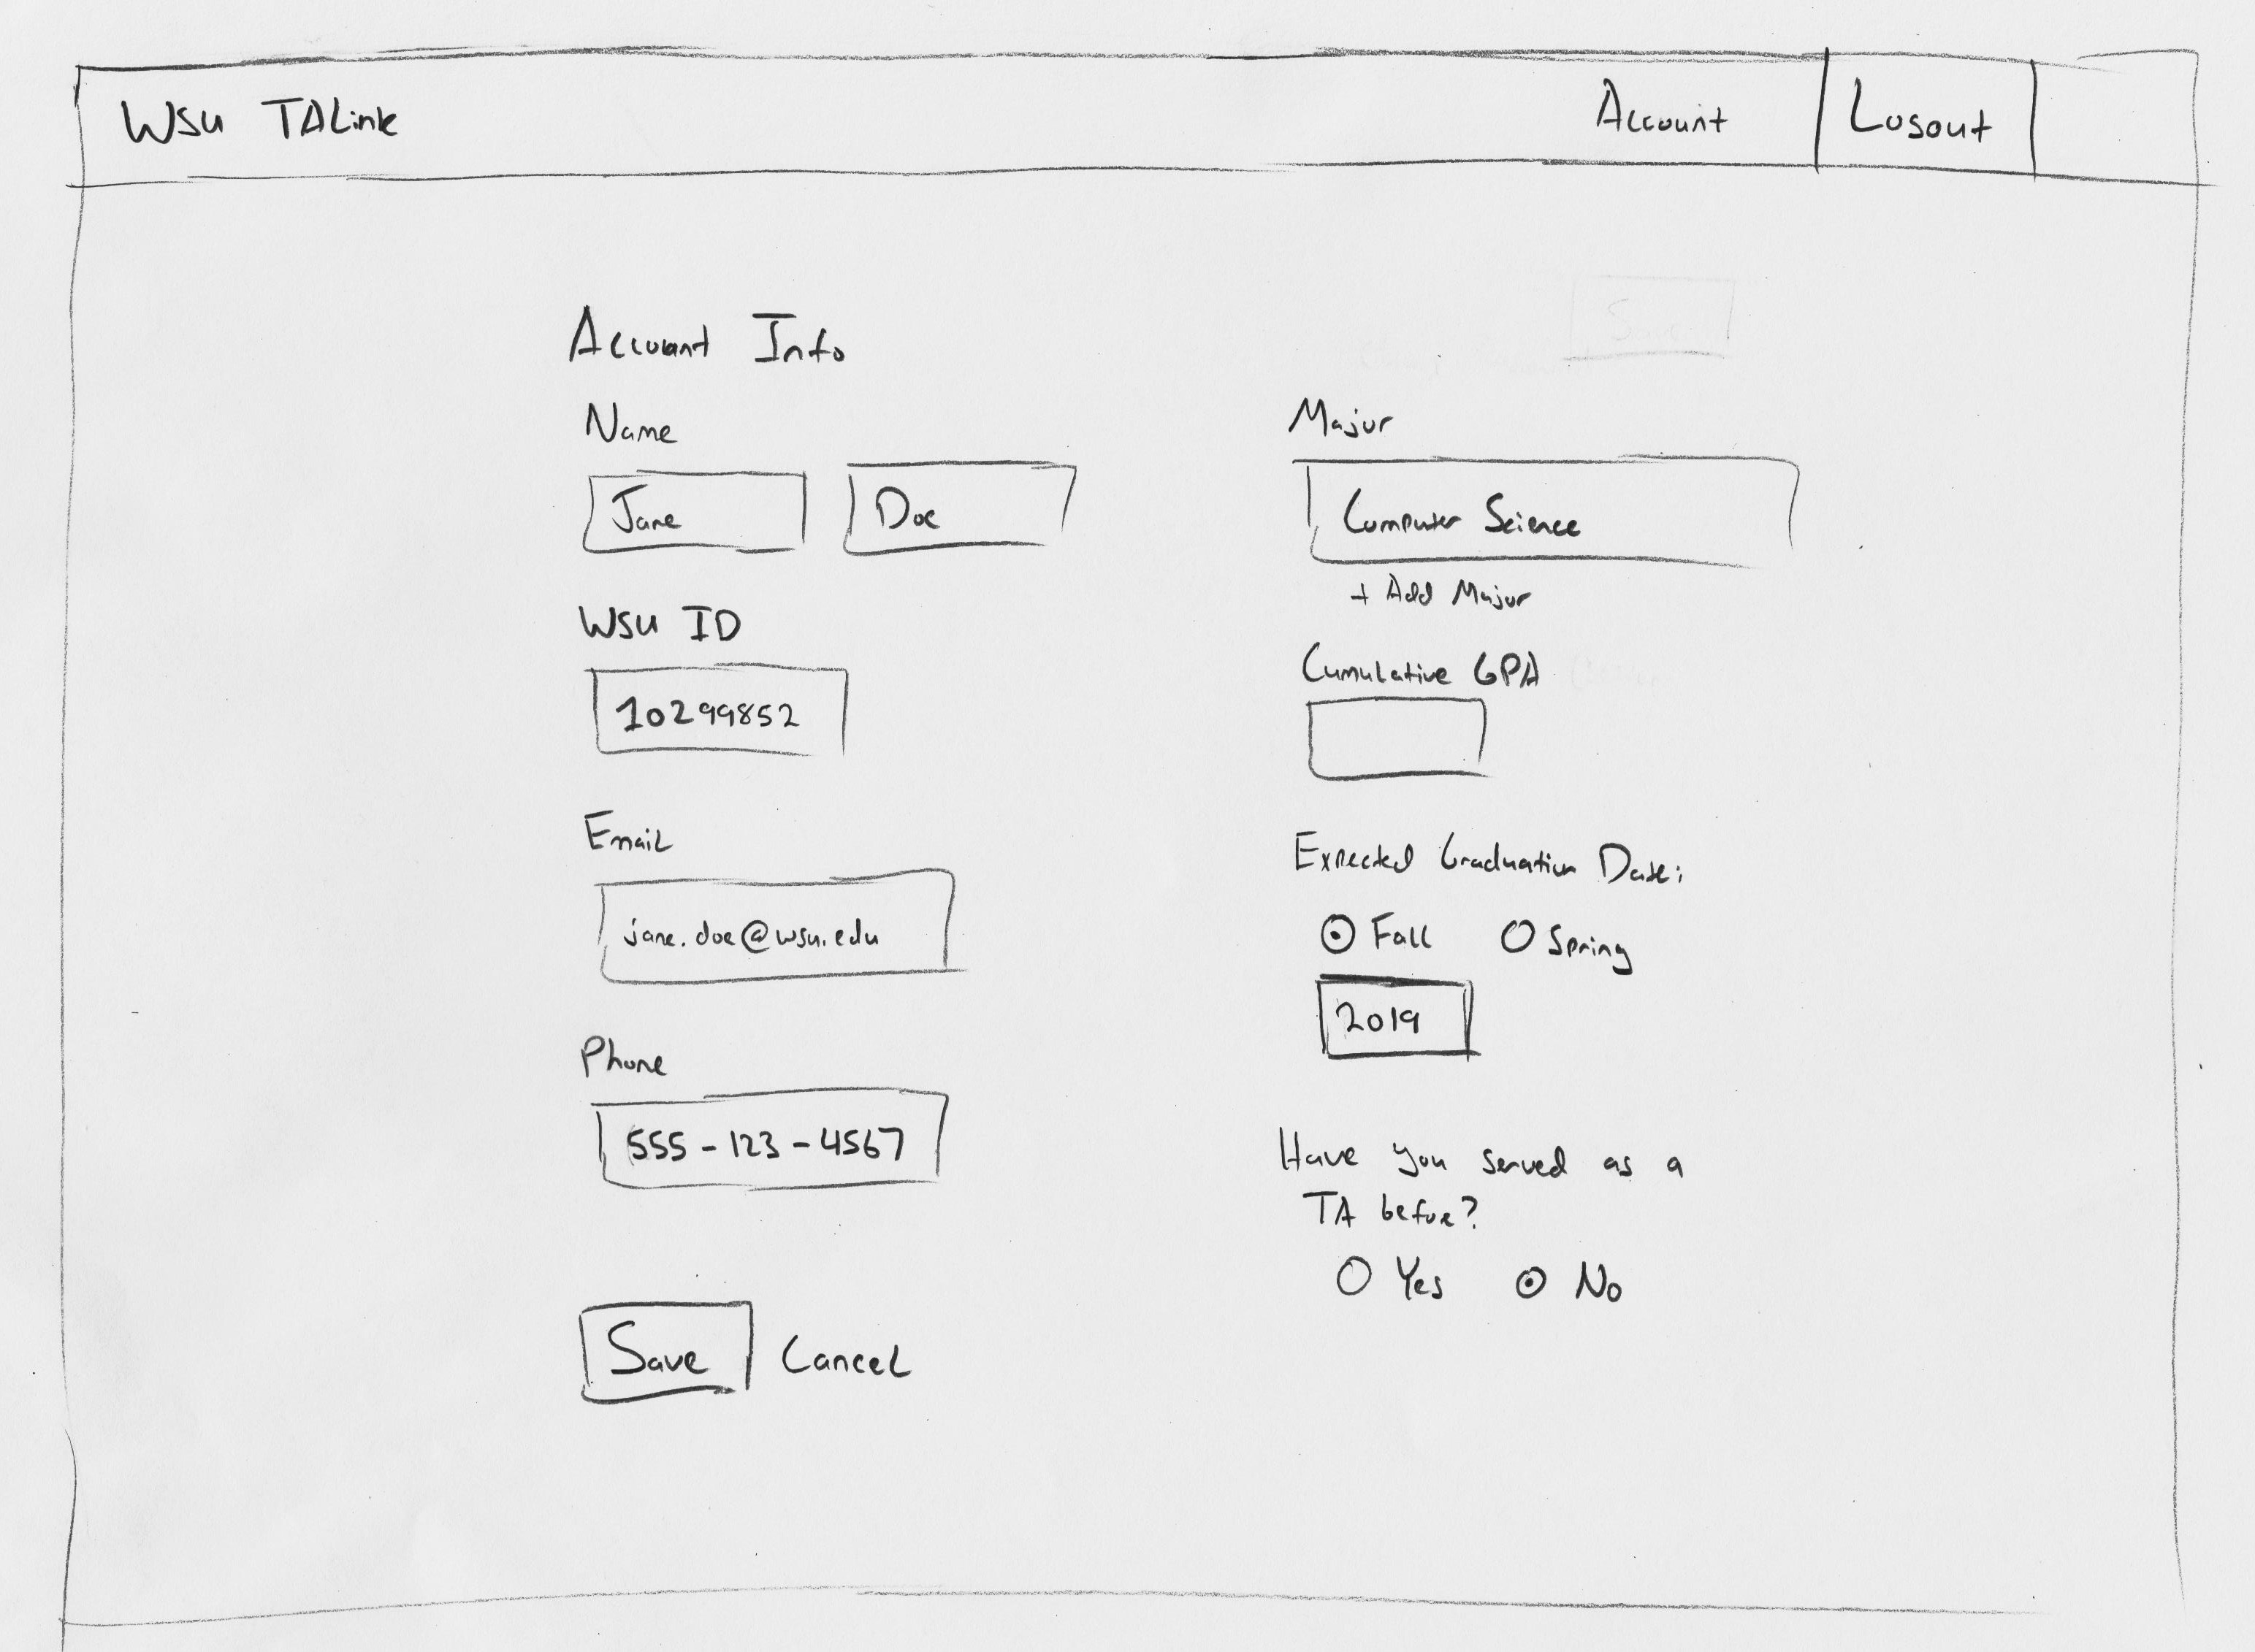 WSU TALink
Account
Logout
Account Info
Name
Jane
Doe
WSU ID
10299852
Email
jane.doe@wsu.edu
Phone
555-123-4567
Save
Cancel
Major
Computer Science
+ Add Major
Cumulative GPA
Expected Graduation Date:
Fall
Spring
2019
Have you served as a
TA before?
Yes
No
Save